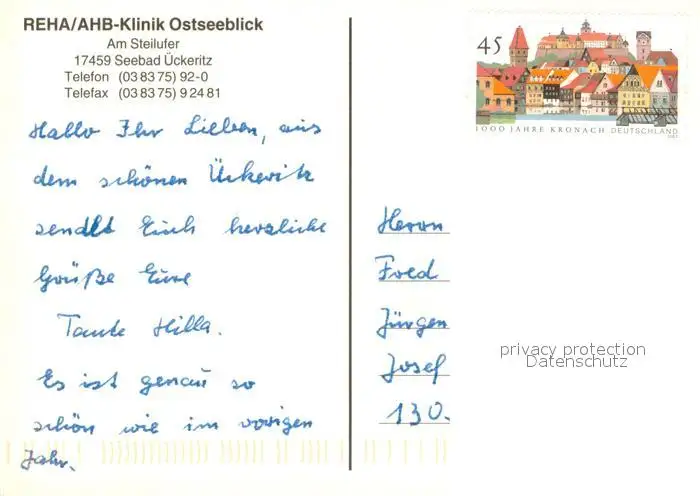 REHA/AHB-Klinik Ostseeblick
Am Steilufer
17459 Seebad Ückeritz
Telefon (03 83 75) 92-0
Telefax (03 83 75) 9 24 81
Hallo Ihr Lieben, aus
dem schönen Ückeritz
sendet Euch herzliche
Grüße Eure
Tante Hilla.
Es ist genau so
schön wie im vorigen
Jahr.
45
1000 JAHRE KRONACH DEUTSCHLAND
Herrn
Fred
Jürgen
Josef
130.
privacy protection
Datenschutz